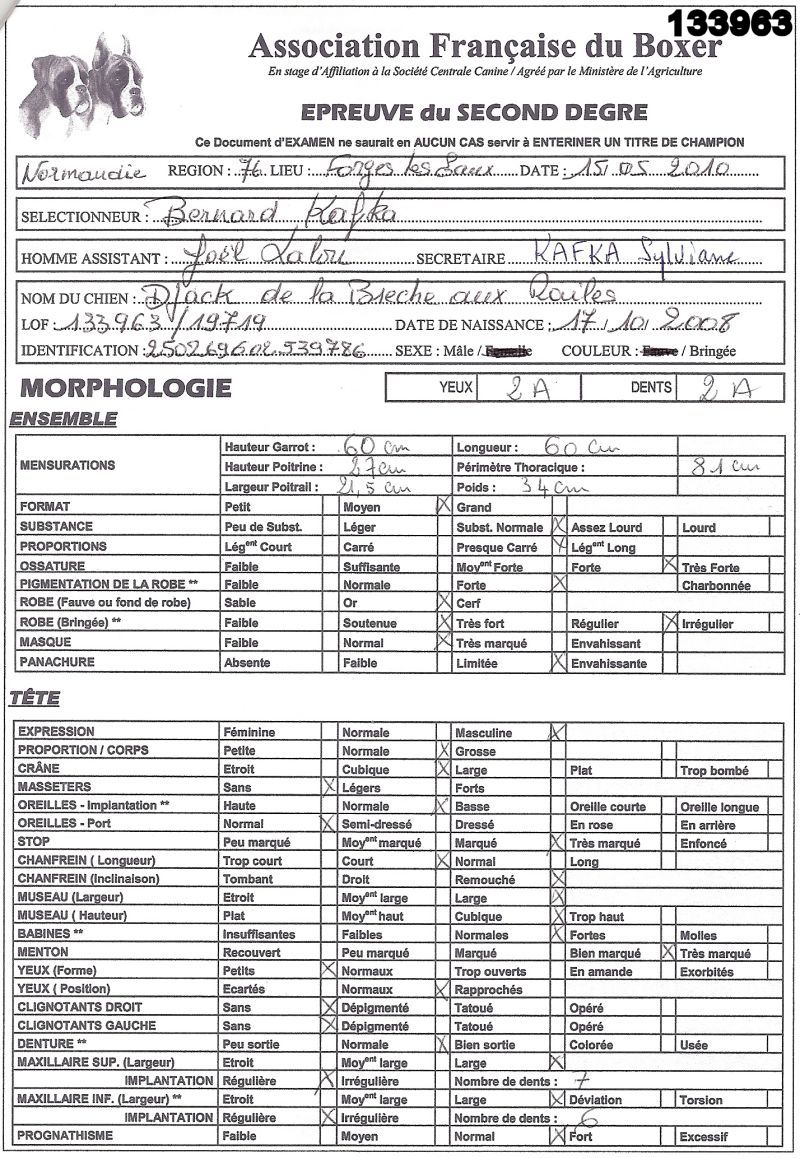 133963
Association Française du Boxer
En stage d'Affiliation à la Société Centrale Canine / Agréé par le Ministère de l'Agriculture
EPREUVE du SECOND DEGRE
Ce Document d'EXAMEN ne saurait en AUCUN CAS servir à ENTERINER UN TITRE DE CHAMPION
Normandie REGION : 76 LIEU : Forges les Eaux DATE : 15/05 2010
SELECTIONNEUR : Bernard Kafka
HOMME ASSISTANT : Joël Lalou SECRETAIRE KAFKA Sylviane
NOM DU CHIEN : Djack de la Breche aux Railes
LOF : 133.963 / 19719 DATE DE NAISSANCE : 17/10/2008
IDENTIFICATION : 250269602539786 SEXE : Mâle / Femelle COULEUR : Fauve / Bringée
MORPHOLOGIE YEUX 2 A DENTS 2 A
ENSEMBLE
MENSURATIONS Hauteur Garrot : 60 cm Longueur : 60 cm
Hauteur Poitrine : 27 cm Périmètre Thoracique : 81 cm
Largeur Poitrail : 21,5 cm Poids : 34 cm
FORMAT Petit Moyen X Grand
SUBSTANCE Peu de Subst. Léger Subst. Normale X Assez Lourd Lourd
PROPORTIONS Légent Court Carré Presque Carré X Légent Long
OSSATURE Faible Suffisante Moyent Forte Forte X Très Forte
PIGMENTATION DE LA ROBE ** Faible Normale Forte X Charbonnée
ROBE (Fauve ou fond de robe) Sable Or X Cerf
ROBE (Bringée) ** Faible Soutenue X Très fort Régulier X Irrégulier
MASQUE Faible Normal X Très marqué Envahissant
PANACHURE Absente Faible Limitée X Envahissante
TÊTE
EXPRESSION Féminine Normale Masculine X
PROPORTION / CORPS Petite Normale X Grosse
CRÂNE Etroit Cubique X Large Plat Trop bombé
MASSETERS Sans X Légers Forts
OREILLES - Implantation ** Haute Normale X Basse Oreille courte Oreille longue
OREILLES - Port Normal X Semi-dressé Dressé En rose En arrière
STOP Peu marqué Moyent marqué Marqué X Très marqué Enfoncé
CHANFREIN ( Longueur) Trop court Court X Normal Long
CHANFREIN (Inclinaison) Tombant Droit Remouché X
MUSEAU (Largeur) Etroit Moyent large Large X
MUSEAU ( Hauteur) Plat Moyent haut Cubique X Trop haut
BABINES ** Insuffisantes Faibles Normales X Fortes Molles
MENTON Recouvert Peu marqué Marqué Bien marqué X Très marqué
YEUX (Forme) Petits X Normaux Trop ouverts En amande Exorbités
YEUX ( Position) Ecartés Normaux X Rapprochés
CLIGNOTANTS DROIT Sans X Dépigmenté Tatoué Opéré
CLIGNOTANTS GAUCHE Sans X Dépigmenté Tatoué Opéré
DENTURE ** Peu sortie Normale X Bien sortie Colorée Usée
MAXILLAIRE SUP. (Largeur) Etroit Moyent large Large X
IMPLANTATION Régulière X Irrégulière Nombre de dents : 7
MAXILLAIRE INF. (Largeur) ** Etroit Moyent large Large X Déviation Torsion
IMPLANTATION Régulière X Irrégulière Nombre de dents : 6
PROGNATHISME Faible Moyen Normal X Fort Excessif